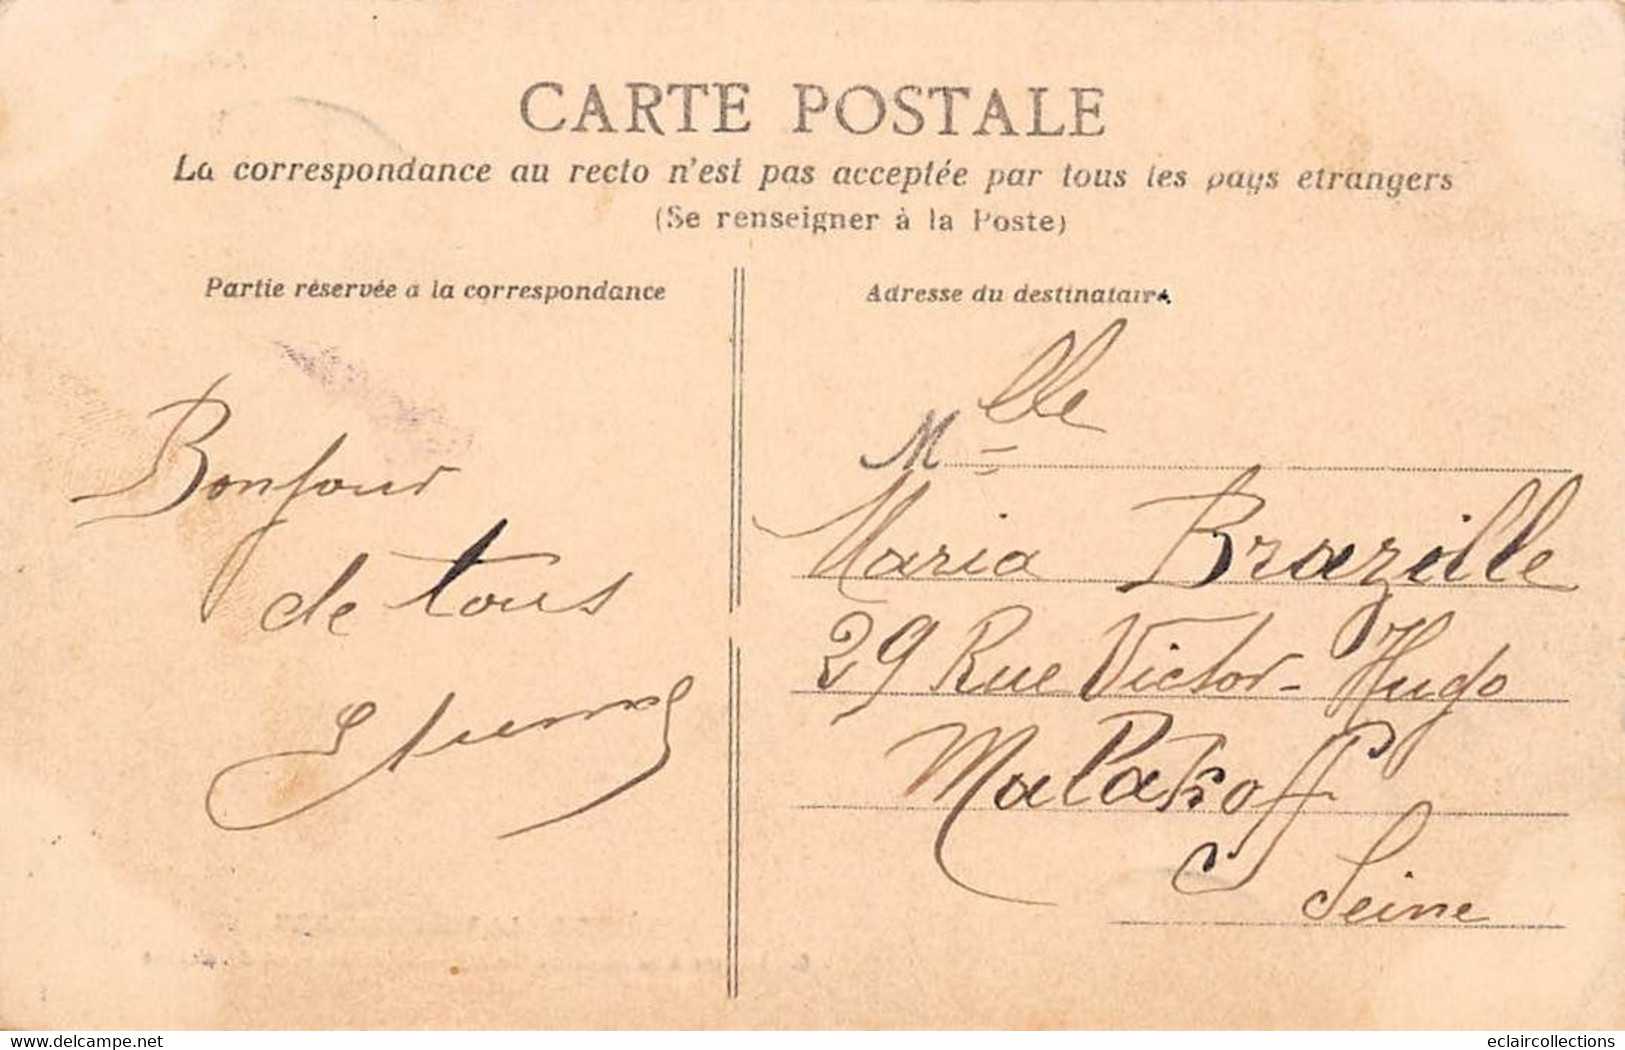 CARTE POSTALE
La correspondance au recto n'est pas acceptée par tous les pays etrangers
(Se renseigner à la Poste)
Partie réservée a la correspondance
Adresse du destinataire
Bonjour
de tous
Mlle
Maria Brazille
29 Rue Victor-Hugo
Malakoff
Seine
www.delcampe.net
eclaircollections